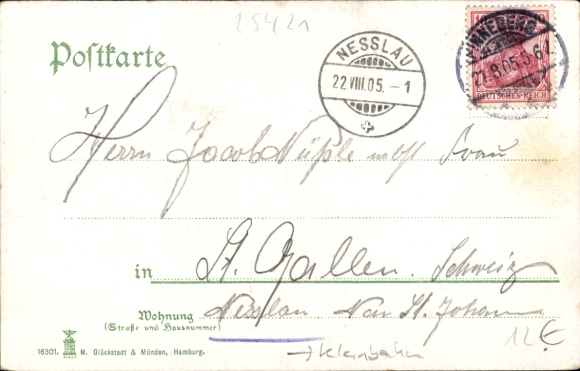 25421
Postkarte
NESSLAU
22.VIII.05.-1
LÜNEBURG
21.8.05.5-6N.
DEUTSCHES REICH
Herrn Jacob Nüßle Frau
in St. Gallen. Schweiz
Wohnung Nesslau Neu St. Johann
(Straße und Hausnummer)
12€
→ Kleinbahn
16301. M. Glückstadt & Münden, Hamburg.